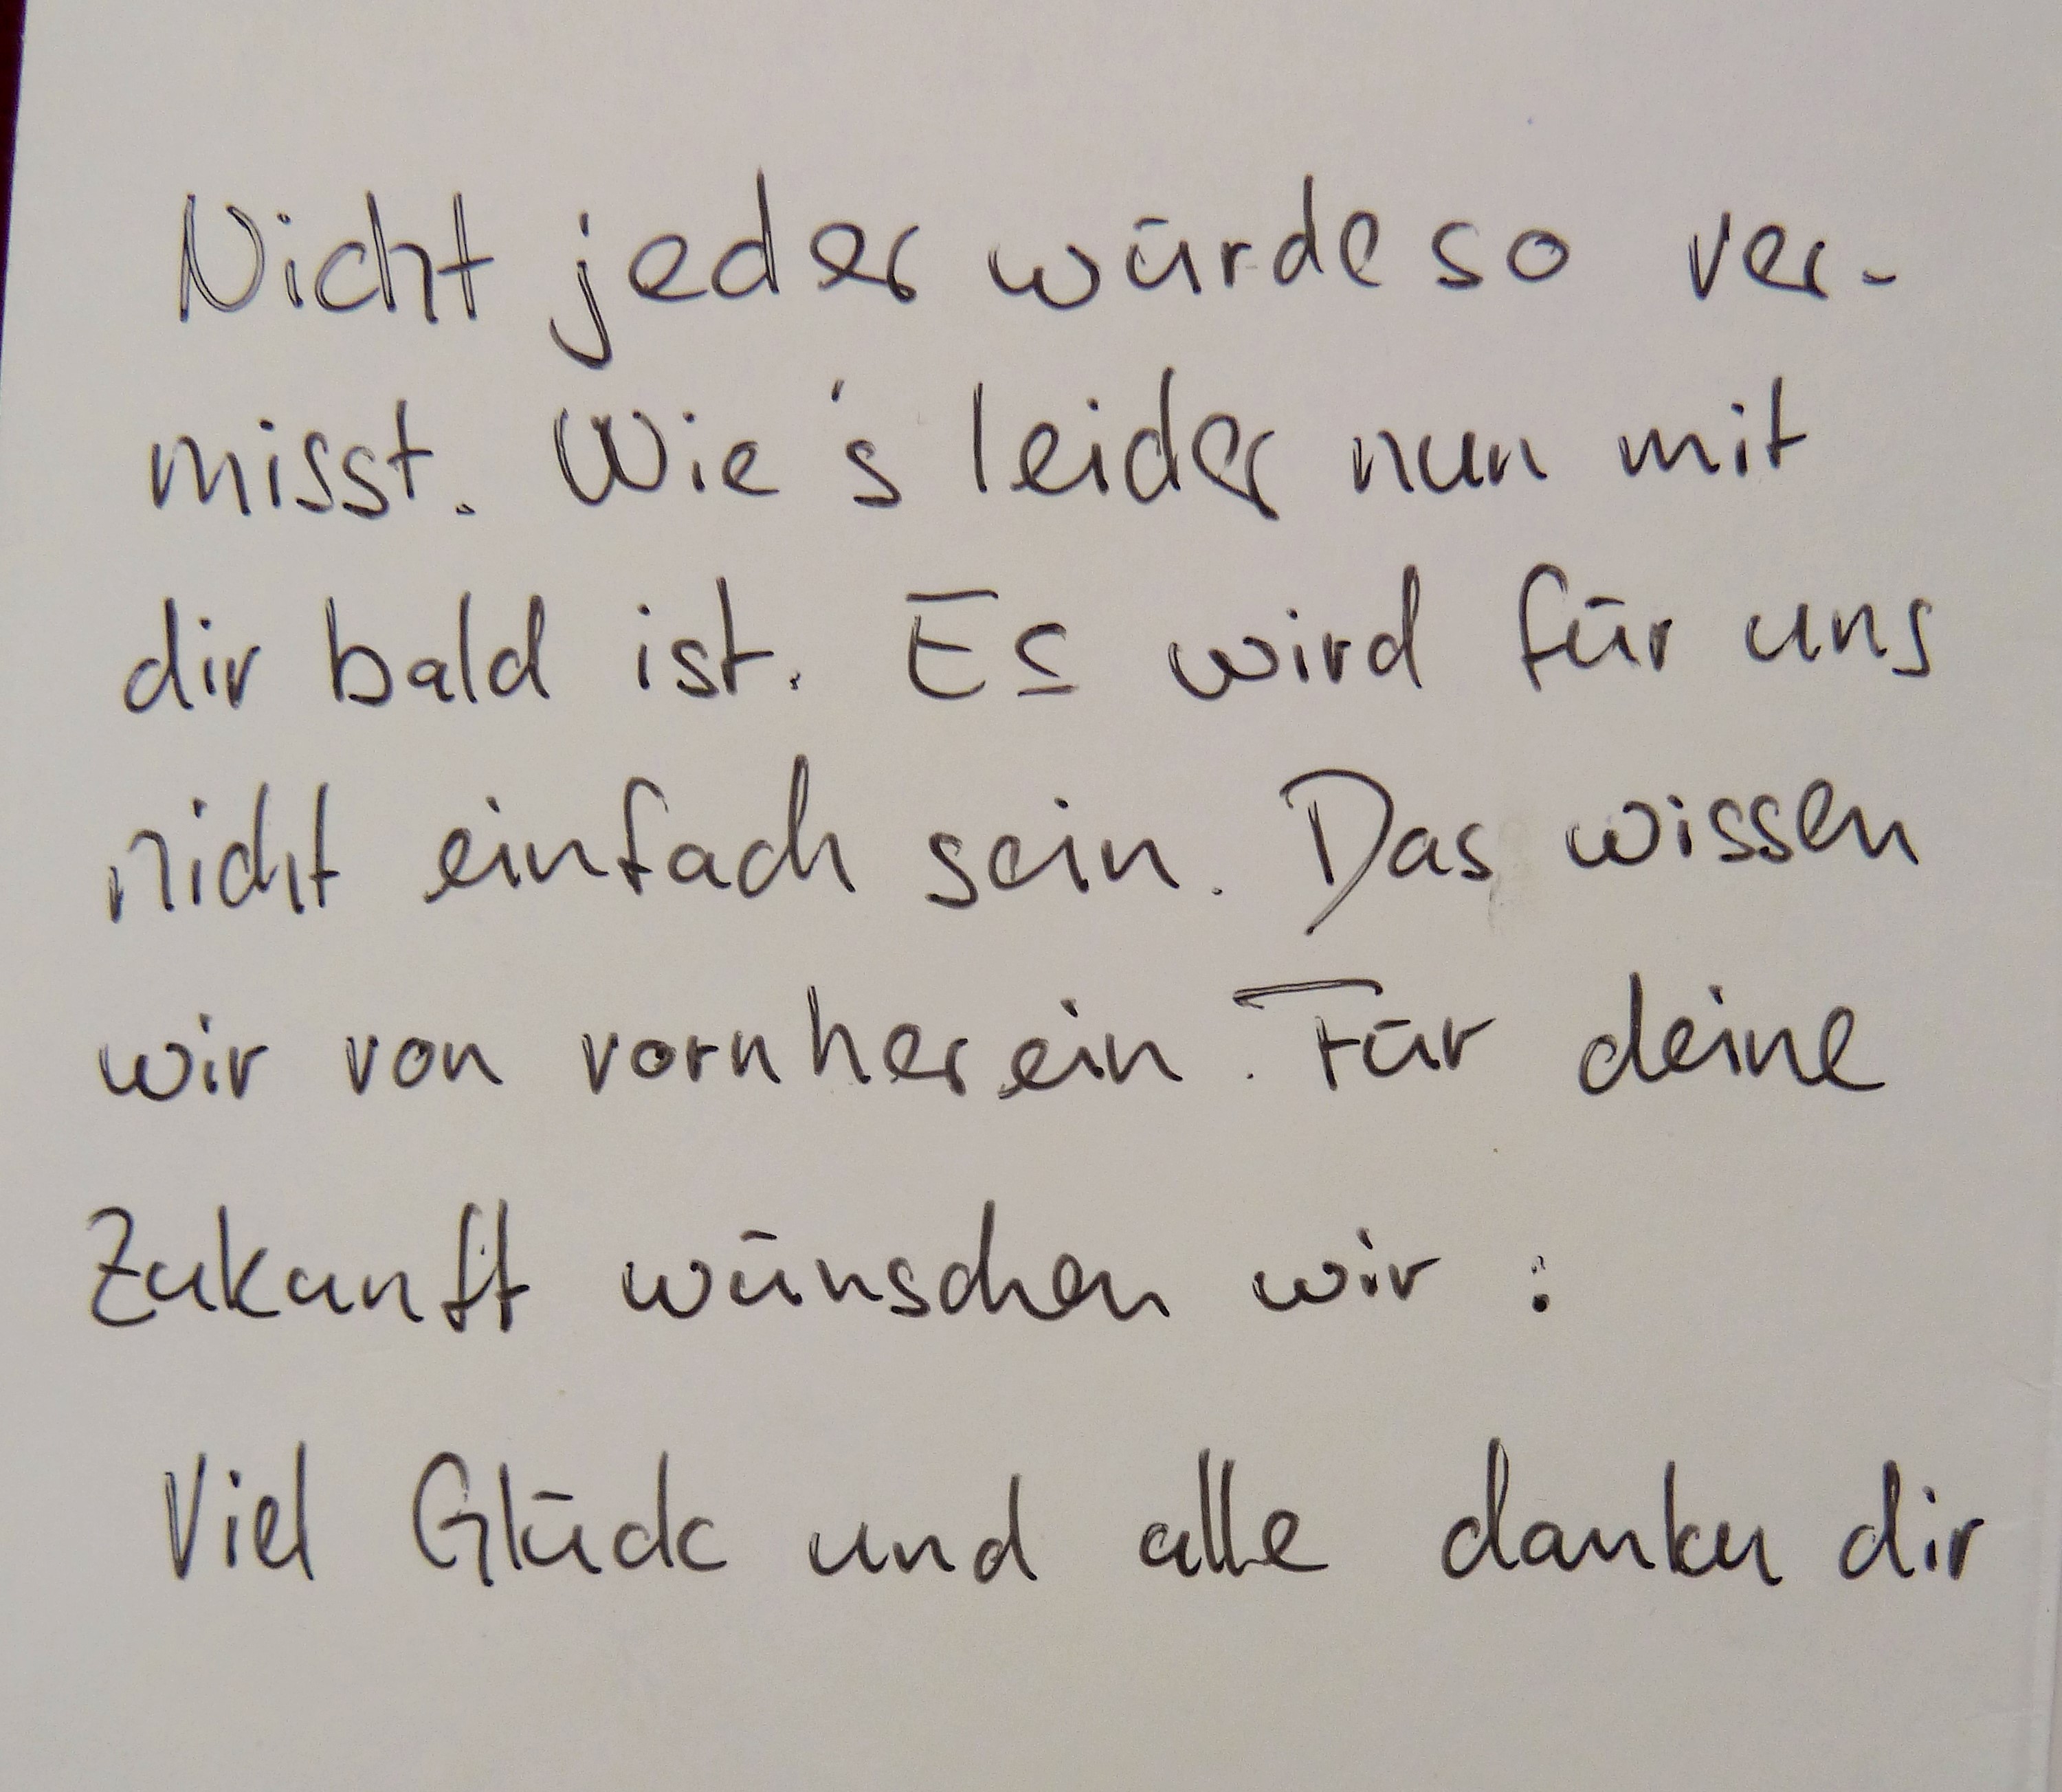 Nicht jeder würde so ver-
misst. Wie's leider nun mit
dir bald ist. Es wird für uns
nicht einfach sein. Das wissen
wir von vornherein. Für deine
Zukunft wünschen wir :
Viel Glück und alle danken dir